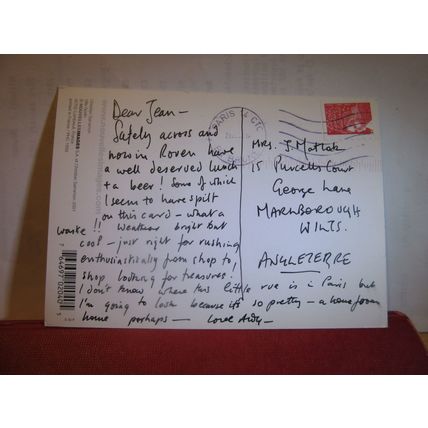 Dear Jean —
Safely across and
now in Rouen have
a well deserved lunch
+ a beer! Some of which
I seem to have spilt
on this card - what a
waste!! Weather bright but
cool - just right for rushing
enthusiastically from shop to
shop looking for treasures!
I don't know where this little rue is in Paris but
I'm going to look because it's so pretty - a home from
home perhaps — Love
MRS. J.
15
George Lane
MARLBOROUGH
WILTS.
ANGLETERRE
PARIS